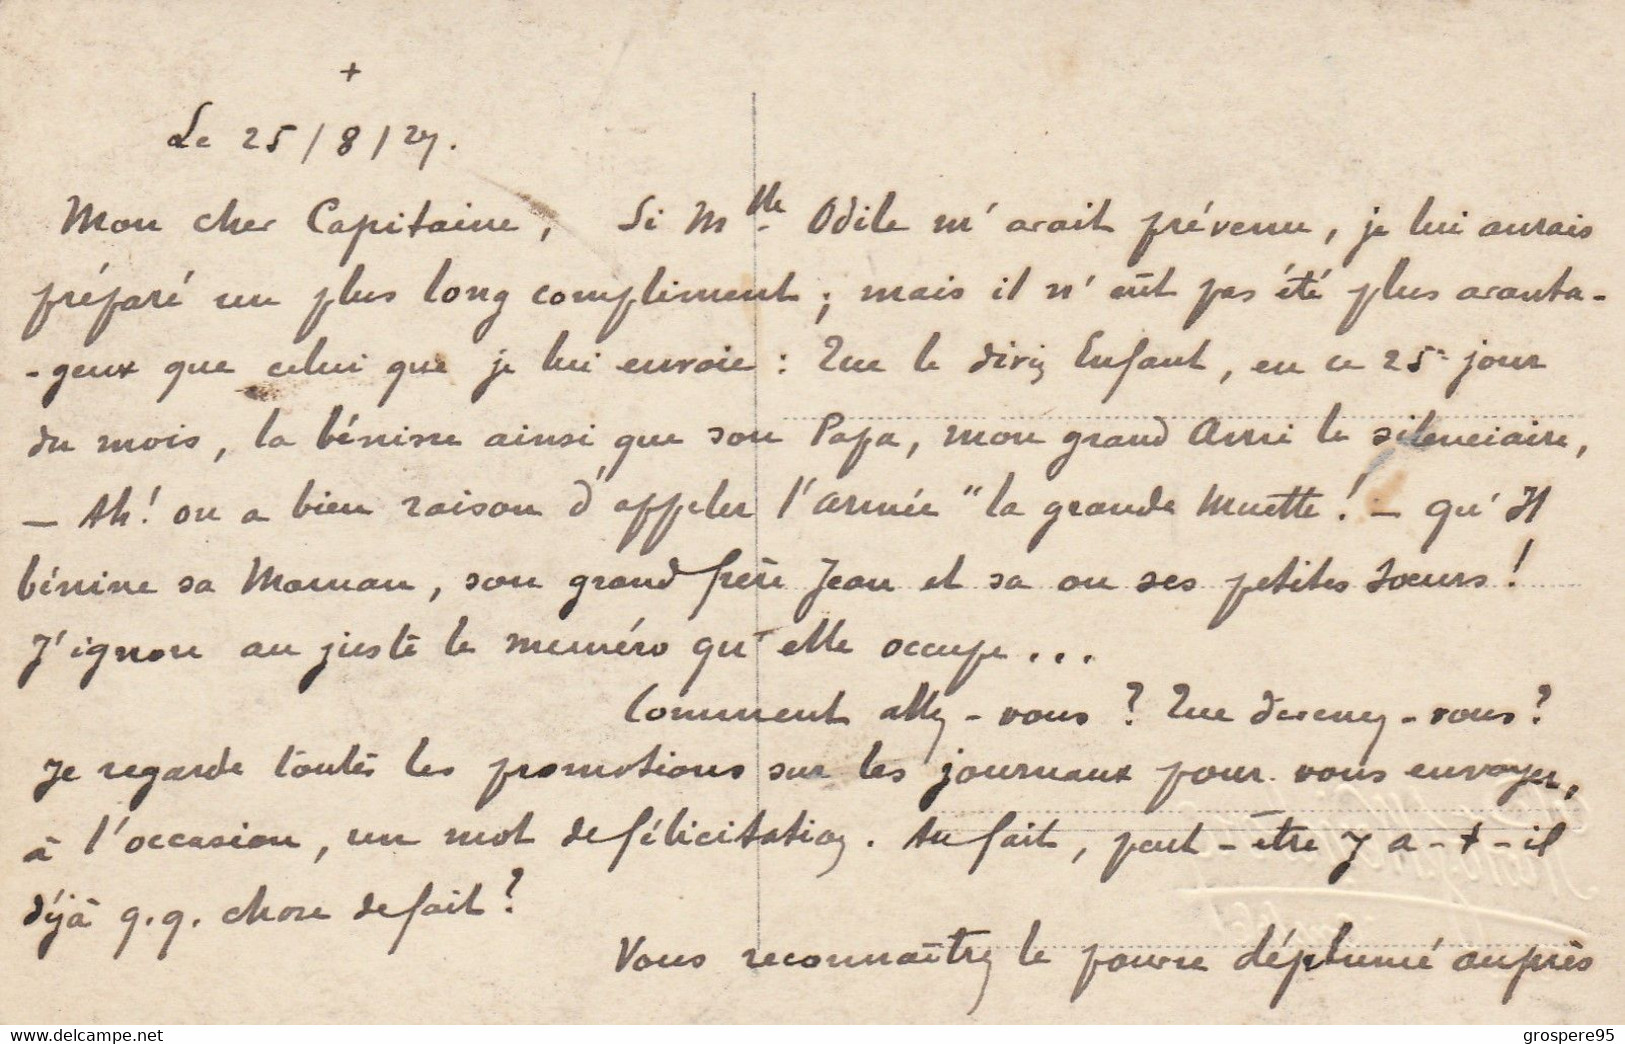 +
Le 25/8/27.
Mon cher Capitaine, Si Mlle Odile m'avait prévenu, je lui aurais
préparé un plus long compliment ; mais il n'eût pas été plus avanta-
-geux que celui que je lui envoie : Que le divin Enfant, en ce 25e jour
du mois, la bénisse ainsi que son Papa, mon grand Ami le silenciaire,
— Ah! on a bien raison d'appeler l'armée "la grande Muette! — qu'Il
bénisse sa Maman, son grand frère Jean et sa ou ses petites sœurs!
J'ignore au juste le numéro qu'elle occupe...
Comment allez-vous ? Que devenez-vous ?
Je regarde toutes les promotions sur les journaux pour vous envoyer,
à l'occasion, un mot de félicitation. Au fait, peut-être y a-t-il
déjà q.q. chose de fait ?
Vous reconnaîtrez le pauvre déplumé auprès
www.delcampe.net
grospere95